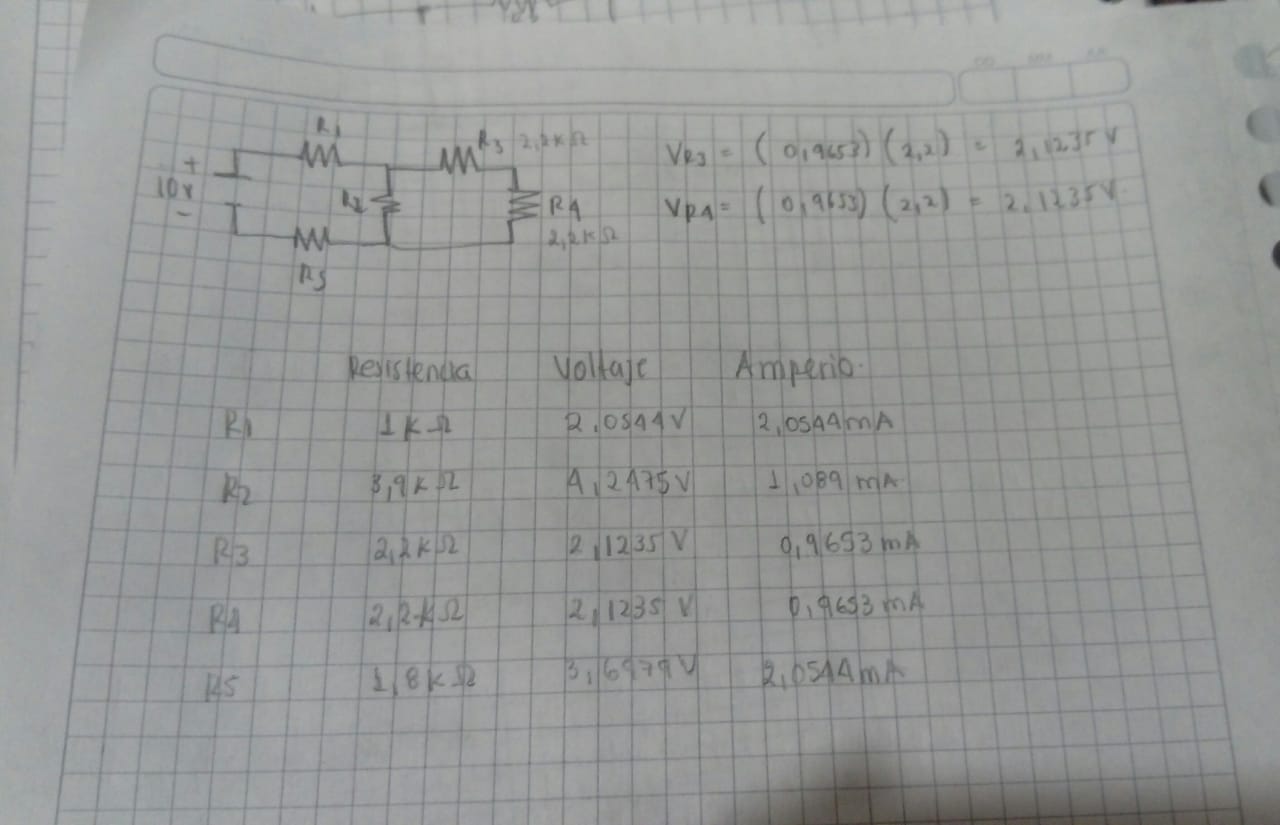 R1
R3 2,2KΩ
VR3 = (0,9653)(2,2) = 2,1235V
+
10v
R2
R4
VR4 = (0,9653)(2,2) = 2.1235V.
-
2,2KΩ
R5
Resistencia Voltaje Amperio.
R1 1KΩ 2,0544V 2,0544mA
R2 3,9KΩ 4,2475V 1,089mA
R3 2,2KΩ 2,1235V 0,9653mA
R4 2,2KΩ 2,1235V 0,9653mA
R5 1,8KΩ 3,6979V 2,0544mA